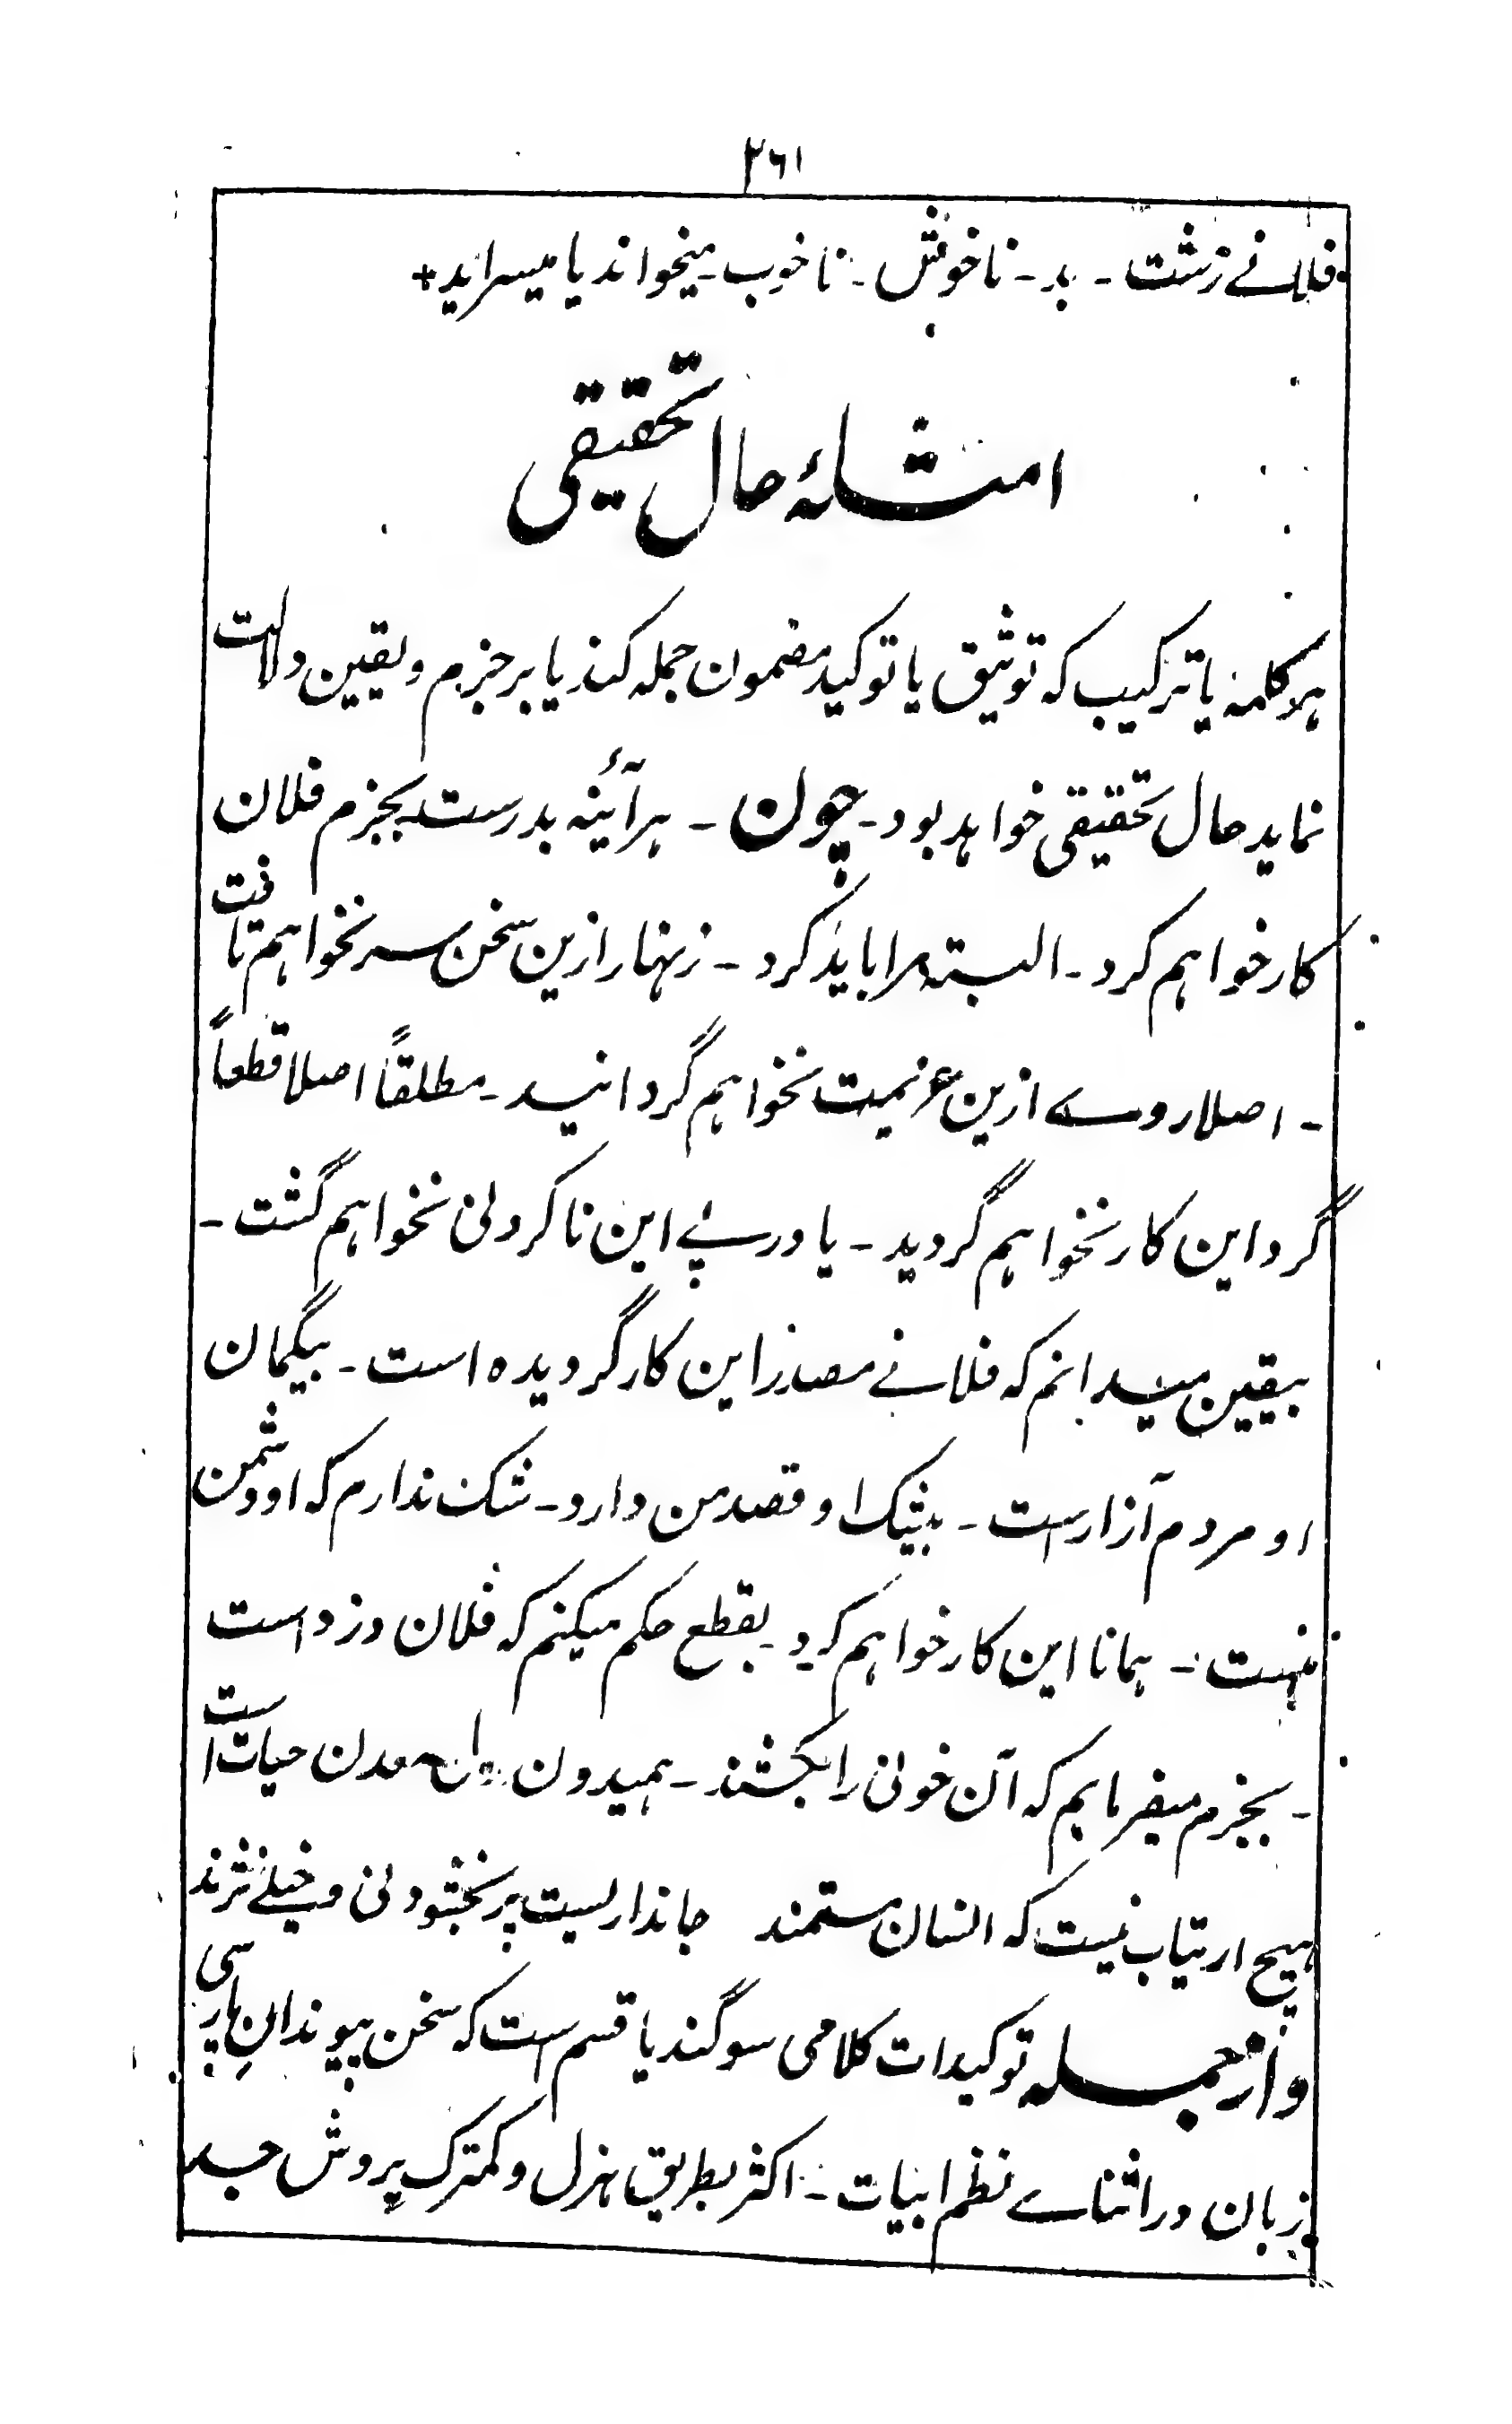 ۲۶۱
فلانے زشت ـ بد ـ ناخوش ـ ناخوب ـ میخواند یا میسراید+
امثلۂ حال تحقیقی
ہر کلمہ یا ترکیب کہ توثیق یا توکید مضمون جملہ کند یا بر جزم و یقین دلالت
نماید حال تحقیقی خواہد بود ـ چون ـ ہر آئنہ بدرست بجزم فلان
کار خواہم کرد ـ البتہ مرا باید کرد ـ زنہار ازین سخن سر نخواہم تافت
ـ اصلا روے ازین عزیمت نخواہم گردانید ـ مطلقاً اصلا قطعاً
گرد این کار نخواہم گردید ـ یا در پے این ناکردنی نخواہم گشت ـ
بیقین میدانم کہ فلانے مصدر این کار گردیدہ است ـ بیگمان
او مردم آزار ست ـ بیشک او قصد من دارد ـ شک ندارم کہ او دشمن
منست ـ ہمانا این کار خواہم کرد ـ بقطع حکم میکنم کہ فلان دزد است
ـ بجزم میفرمایم کہ آن خونی را بکشند ـ ہمیدون معدن حیات است
ہیچ ارتیاب نیست کہ انسان مستمند جانداریست پر بخشودنی و خیلے نژند
و از جملہ توکیدات کلامی سوگند یا قسم است کہ سخن پیوندانِ پارسی
زبان در اثناے نظم ابیات ـ اکثر بطریق ہزل و کمترک بروش جد